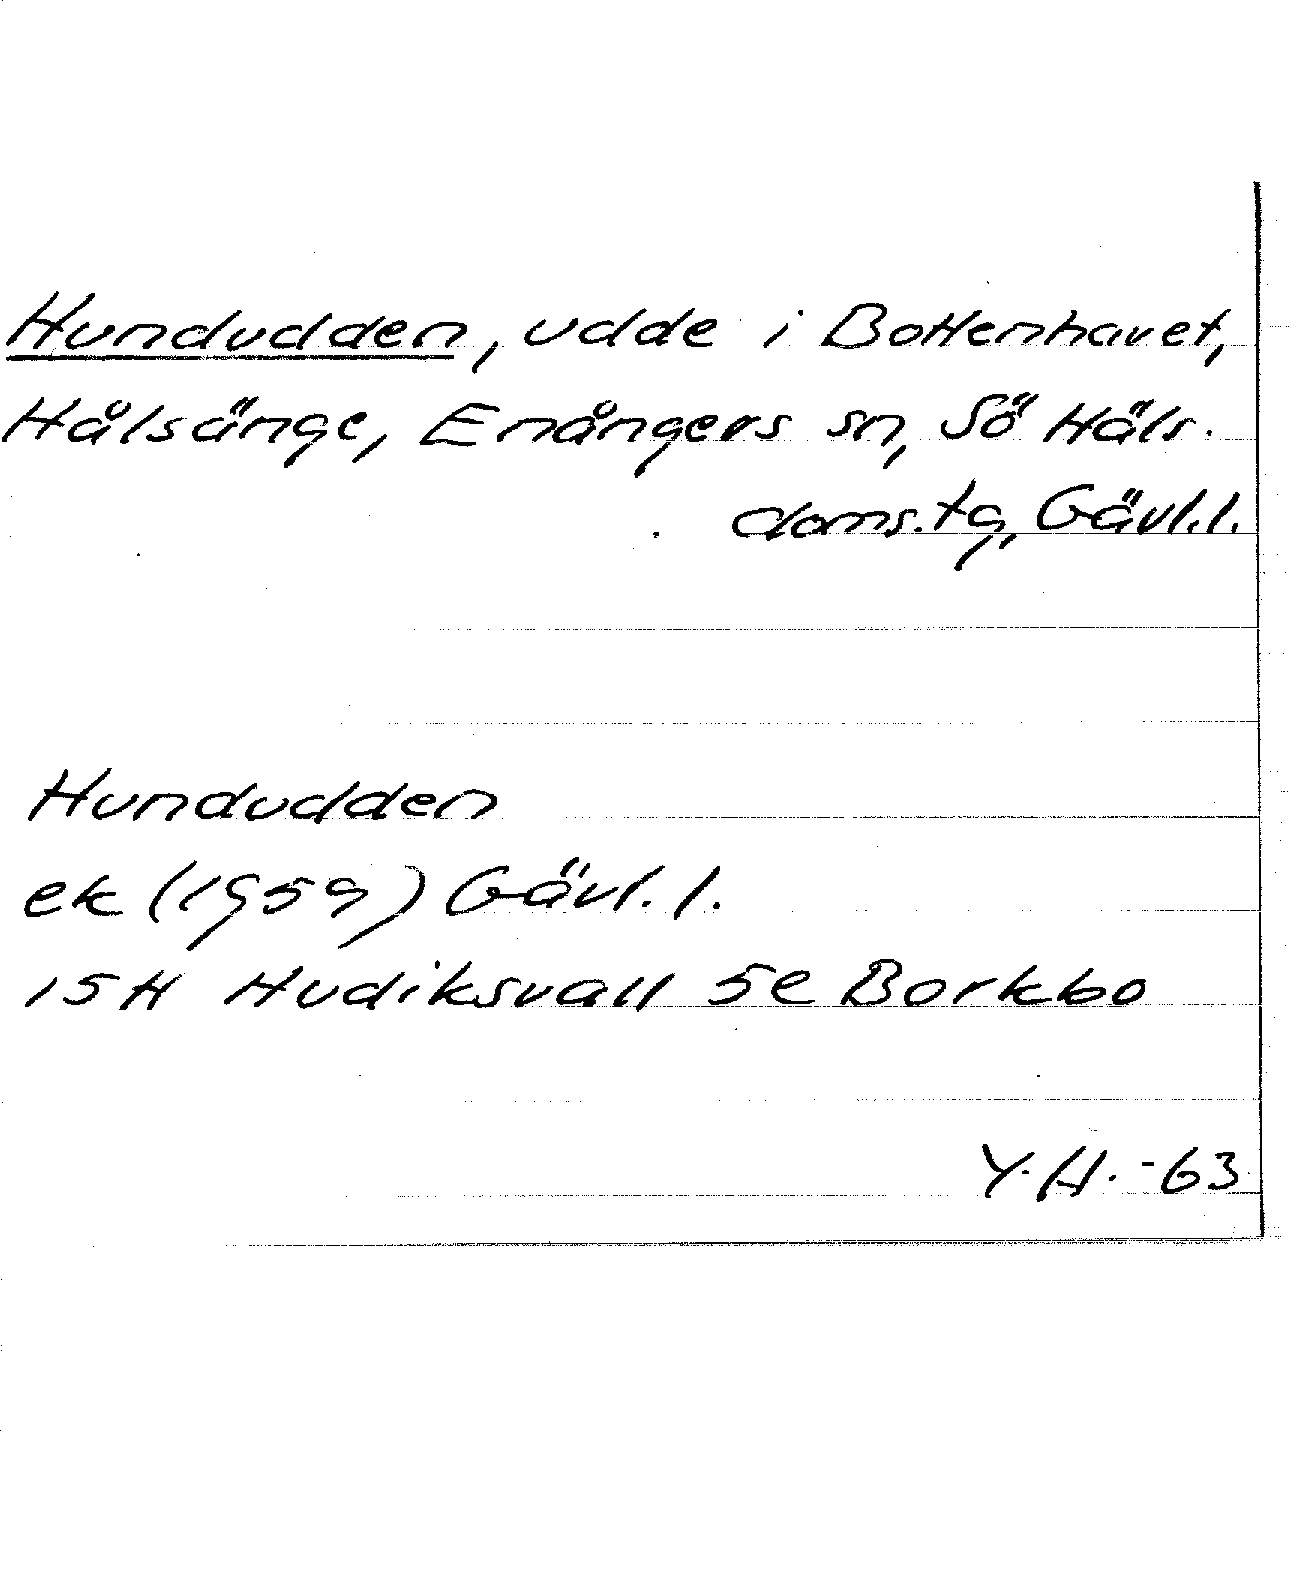 Hundudden, udde i Bottenhavet,
Hålsänge, Enångers sn, Sö Häls.
doms.tg, Gävl.l.
Hundudden
ek (1959) Gävl. l.
15H Hudiksvall 5e Borkbo
Y.H. -63